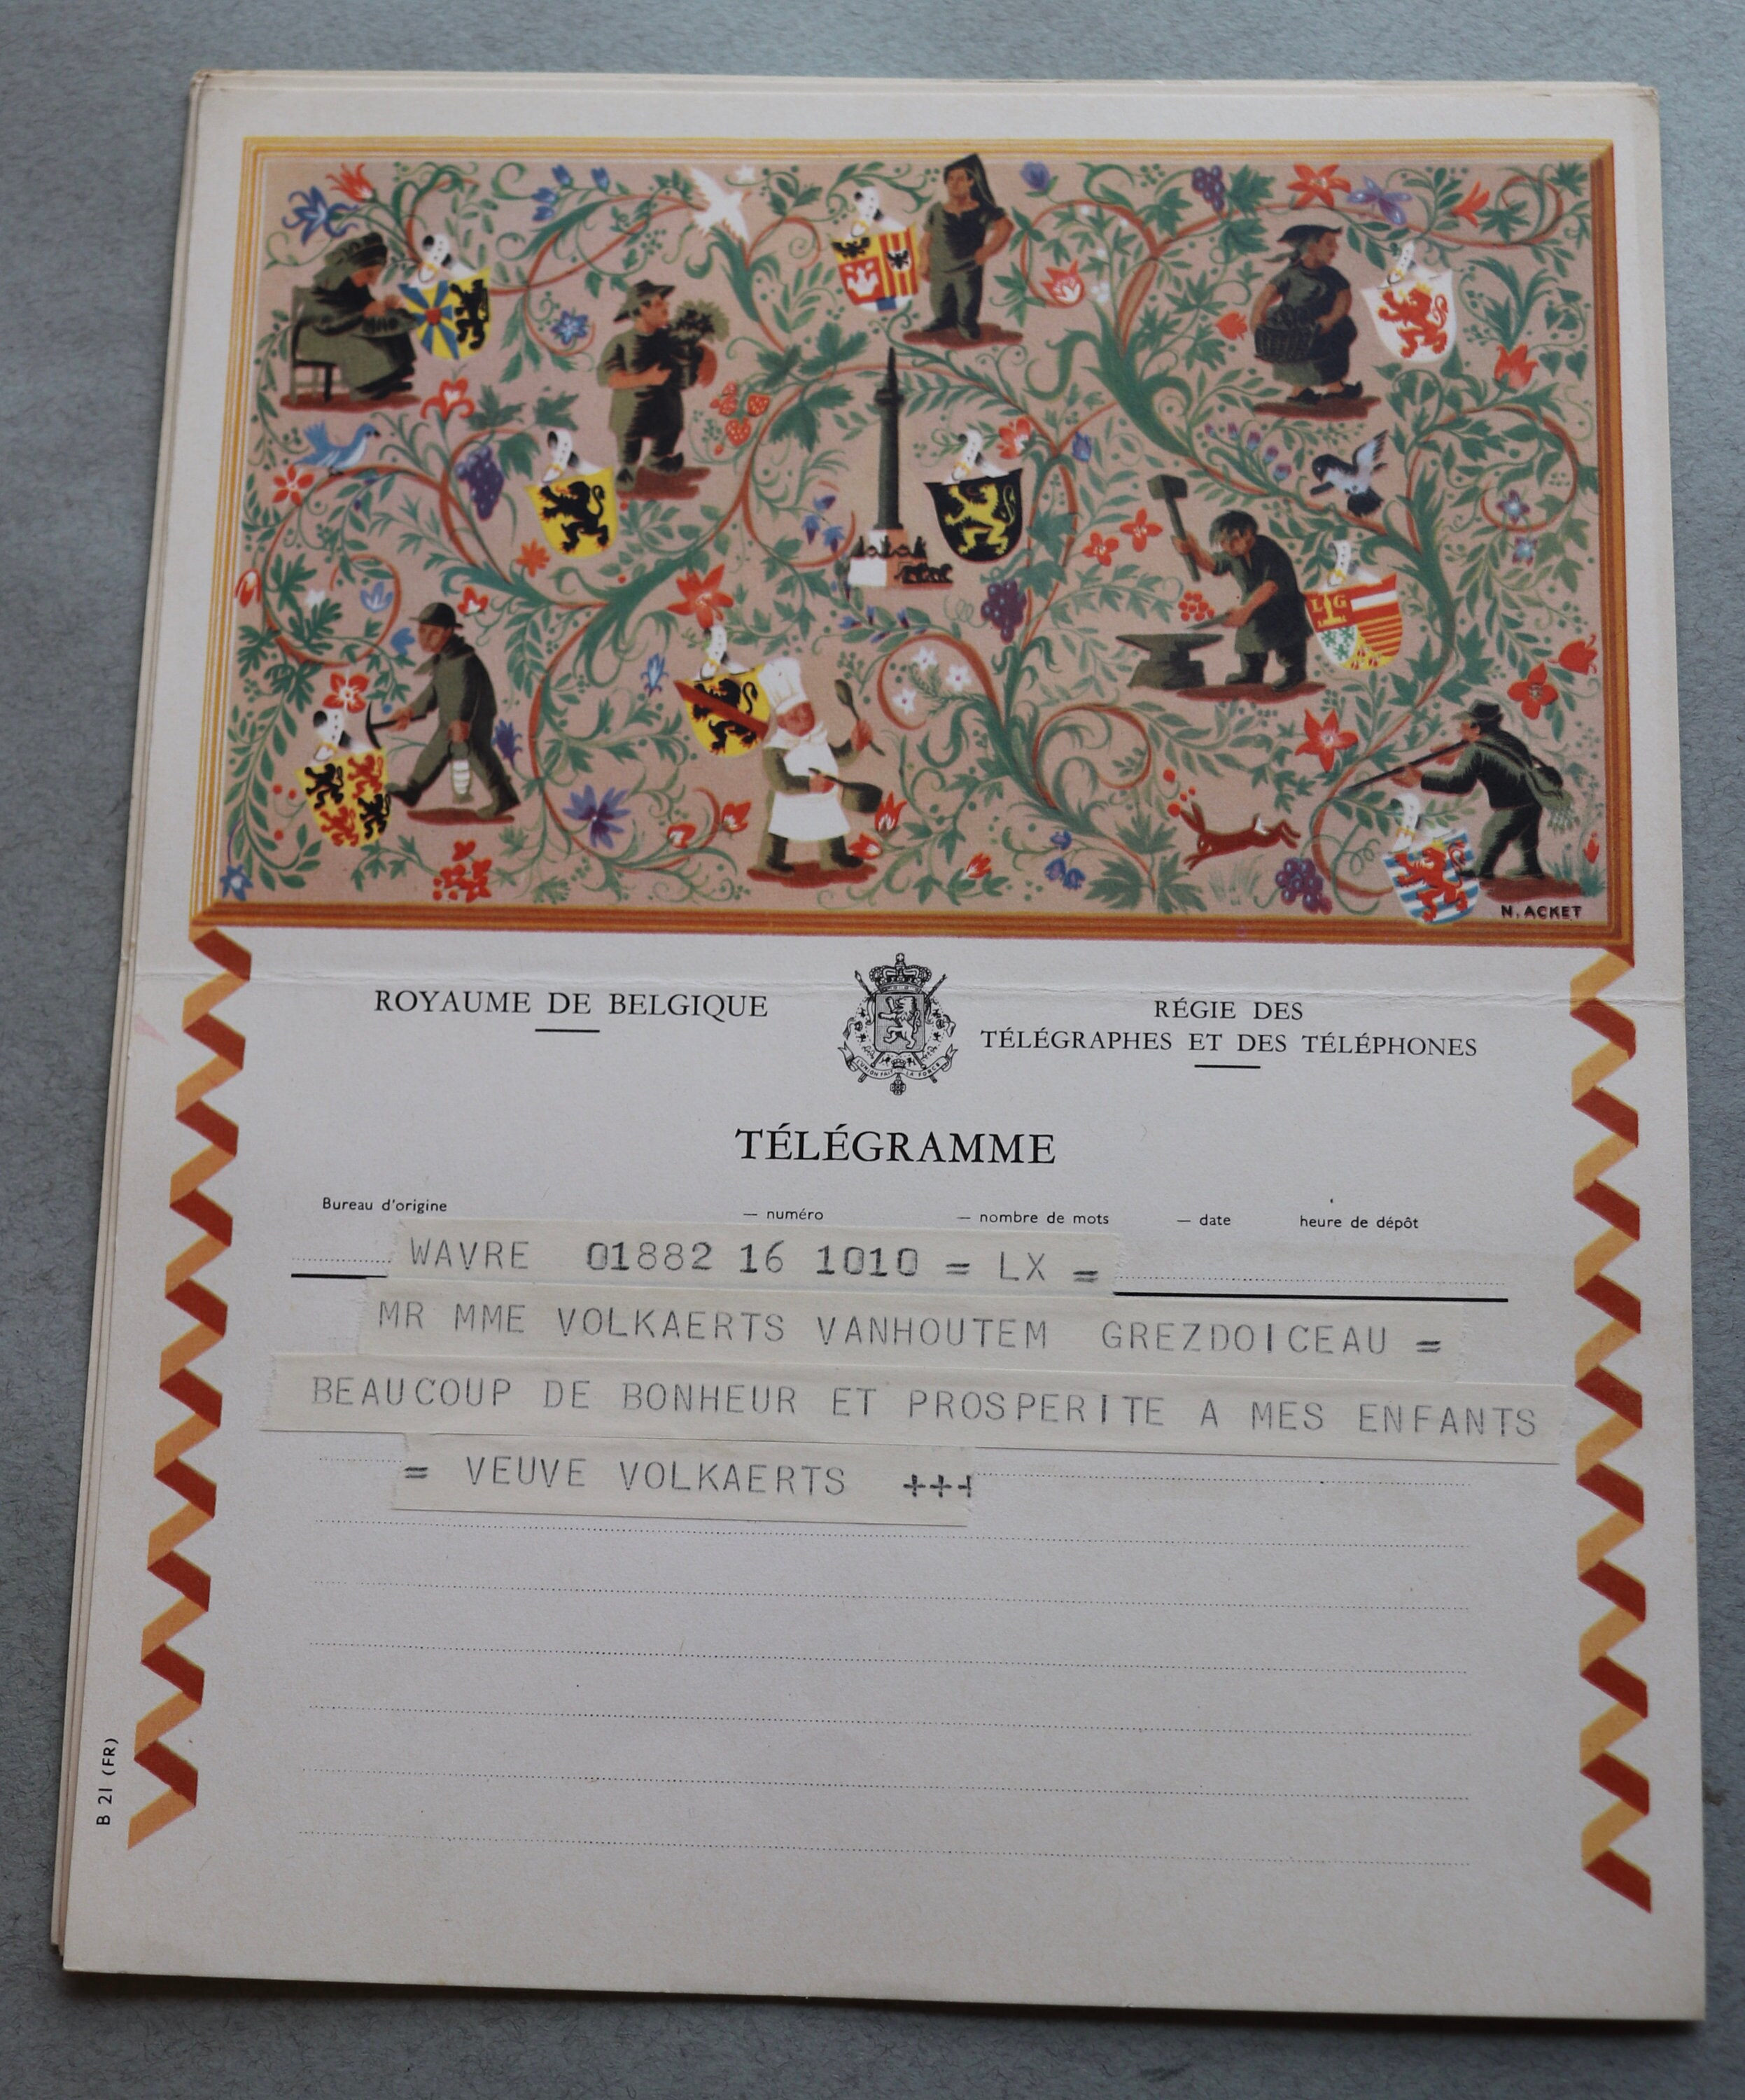 L G
N. ACKET
ROYAUME DE BELGIQUE
RÉGIE DES
TÉLÉGRAPHES ET DES TÉLÉPHONES
L'UNION FAIT LA FORCE
TÉLÉGRAMME
Bureau d'origine — numéro — nombre de mots — date heure de dépôt
WAVRE 01882 16 1010 = LX =
MR MME VOLKAERTS VANHOUTEM GREZDOICEAU =
BEAUCOUP DE BONHEUR ET PROSPERITE A MES ENFANTS
= VEUVE VOLKAERTS +++
B 21 (FR)